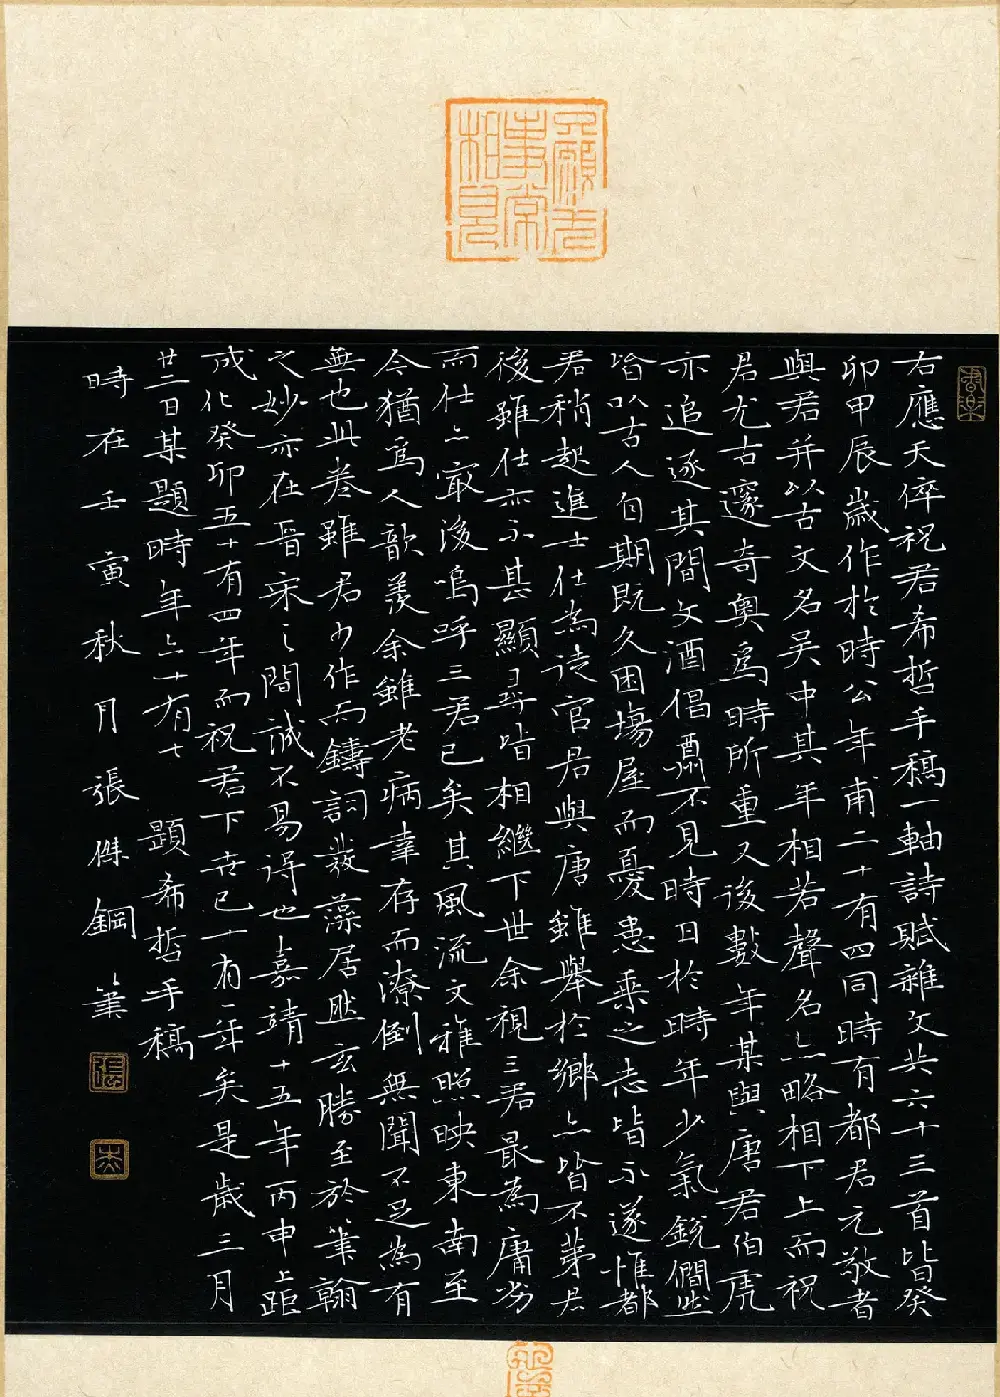 右應天倅祝君希哲手稿一軸詩賦雜文共六十三首皆癸
卯甲辰歲作於時公年甫二十有四同時有都君元敬者
與君并以古文名吳中其年相若聲名亦略相下上而祝
君尤古邃奇奧為時所重又後數年某與唐君伯虎
亦追逐其間文酒倡酬不見時日於時年少氣銳僩然
皆以古人自期既久困場屋而憂患乘之志皆不遂惟都
君稍起進士仕為徒官君與唐雖舉於鄉亦皆不第君
後雖仕亦不甚顯尋皆相繼下世余視三君最為庸劣
而仕亦最後嗚呼三君已矣其風流文雅照映東南至
今猶為人歆羨余雖老病幸存而潦倒無聞不足為有
無也此卷雖君少作而鑄詞發藻居然玄勝至於筆翰
之妙亦在晉宋之間誠不易得也嘉靖十五年丙申上距
成化癸卯五十有四年而祝君下世已十有一年矣是歲三月
廿二日某題時年六十有七 題希哲手稿
時在壬寅秋月張傑鋼筆
張
杰